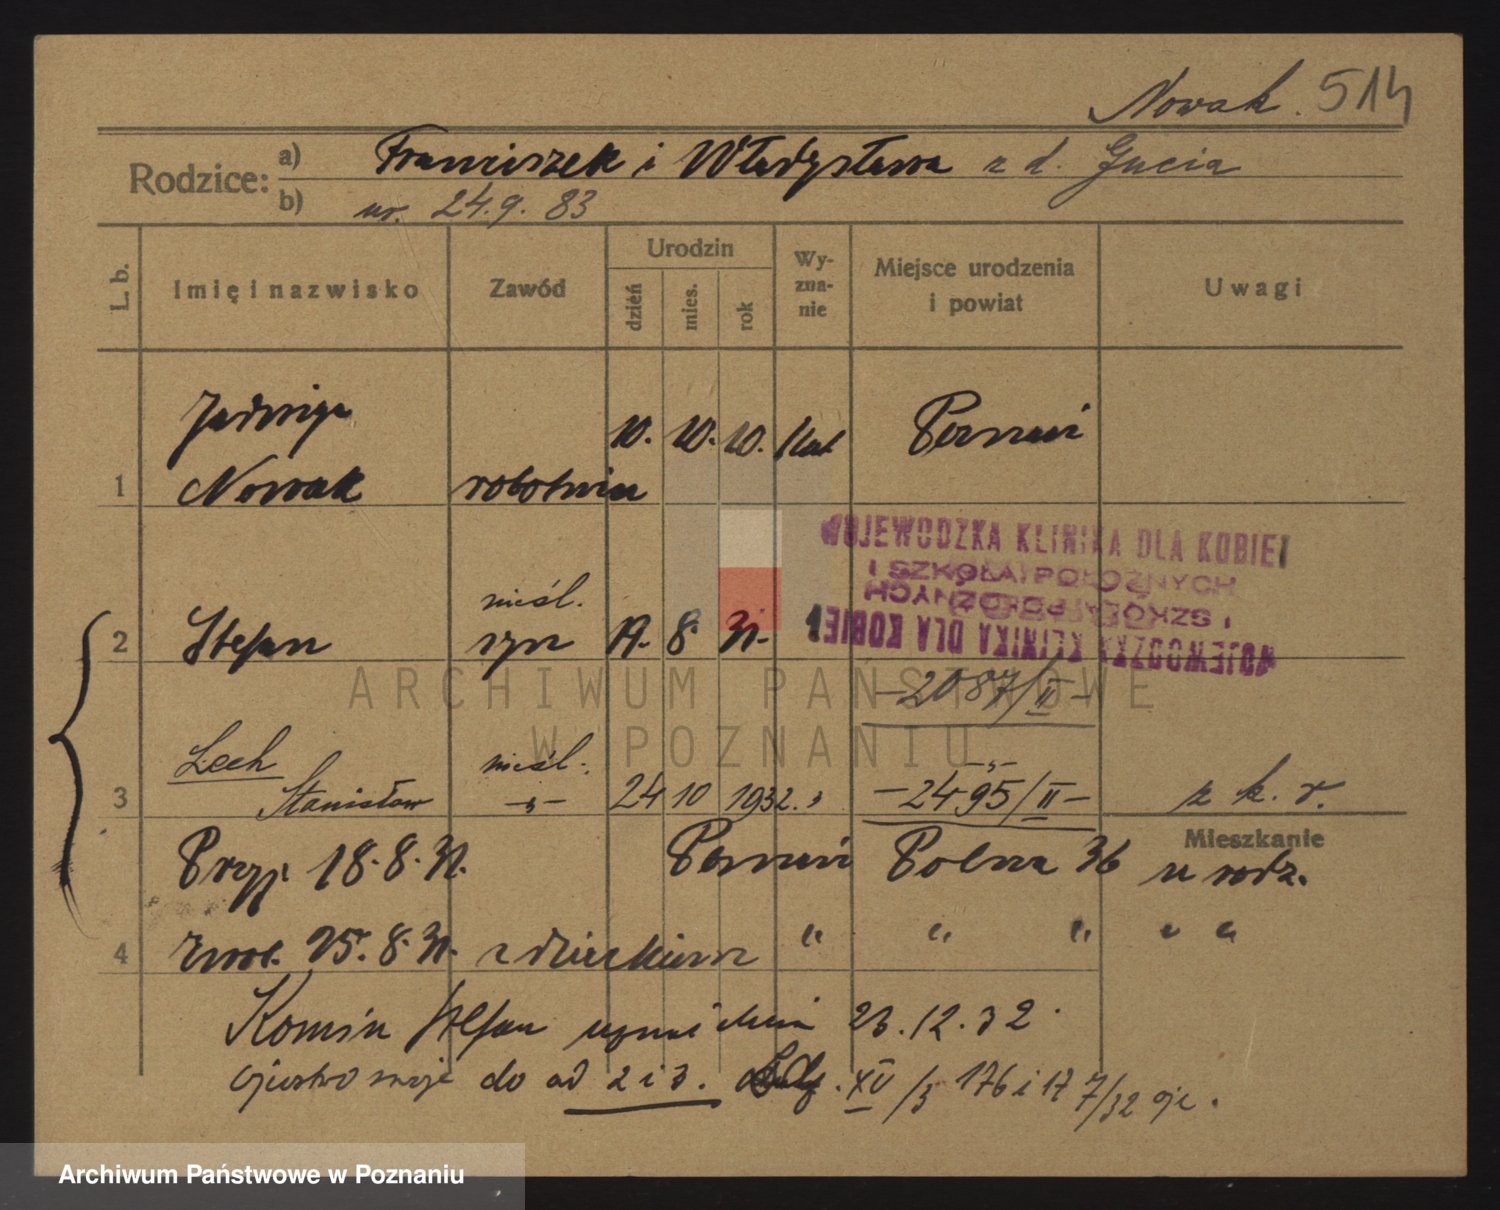 Nowak. 514
Rodzice: a) Franciszek i Władysława z d. Gucia
b) ur. 24.9.83
L. b. Imię i nazwisko Zawód Urodzin dzień mies. rok Wy-zna-nie Miejsce urodzenia i powiat Uwagi
Jadwiga 10. 10. 10. kat Poznań
1 Nowak robotnica
WOJEWODZKA KLINIKA DLA KOBIET
I SZKOŁA POŁOŻNYCH
I SZKOŁA POŁOŻNYCH
WOJEWODZKA KLINIKA DLA KOBIET
nieśl.
2 Stefan syn 19. 8. 31.
-2087/II-
Lech nieśl. -"-
3 Stanisław -"- 24 10 1932. -2495/II- z k. r.
Mieszkanie
Przyj. 18.8.31. Poznań Polna 36 u rodz.
4 Zwol. 25.8.31. z dzieckiem " " " " "
Komin Stefan uznał dnia 23.12.32.
ojcostwo swoje do ad 2 i 3. XV/3 176 i 17 7/32
ARCHIWUM PAŃSTWOWE
W POZNANIU
Archiwum Państwowe w Poznaniu